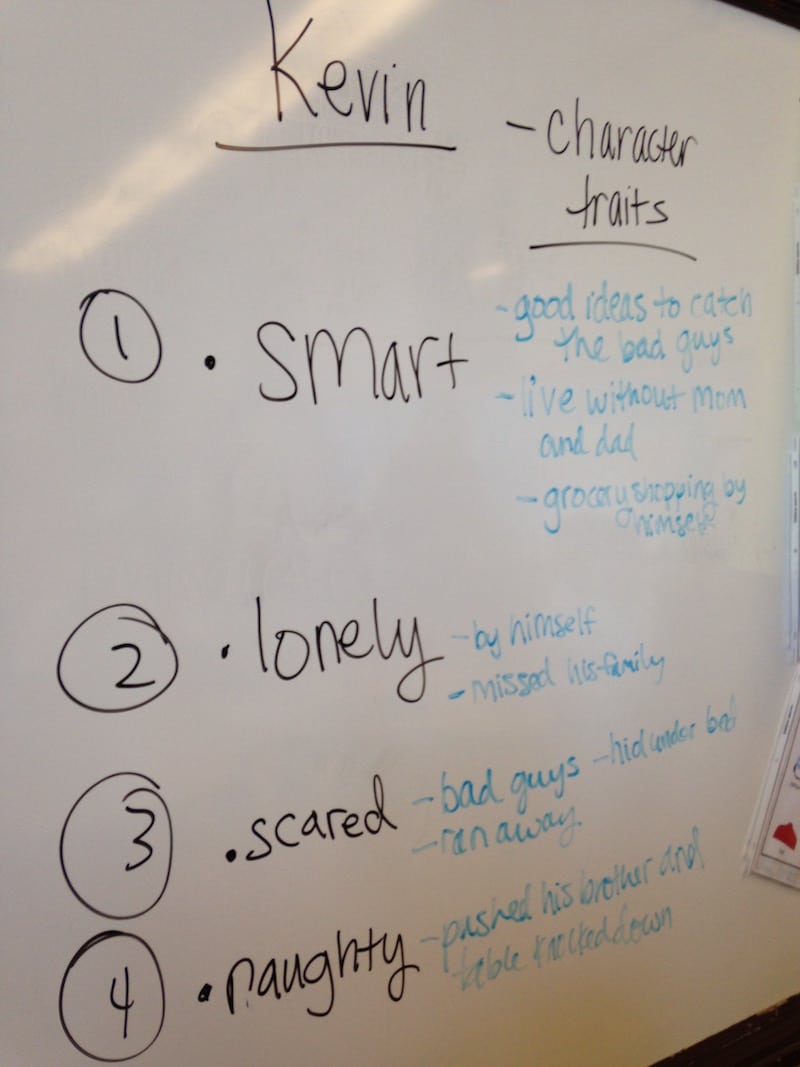 Kevin
- character
traits
1 • smart
- good ideas to catch
the bad guys
- live without mom
and dad
- grocery shopping by
himself
2 • lonely
- by himself
- missed his family
3 • scared
- bad guys - hid under bed
- ran away
4 • naughty
- pushed his brother and
table knocked down